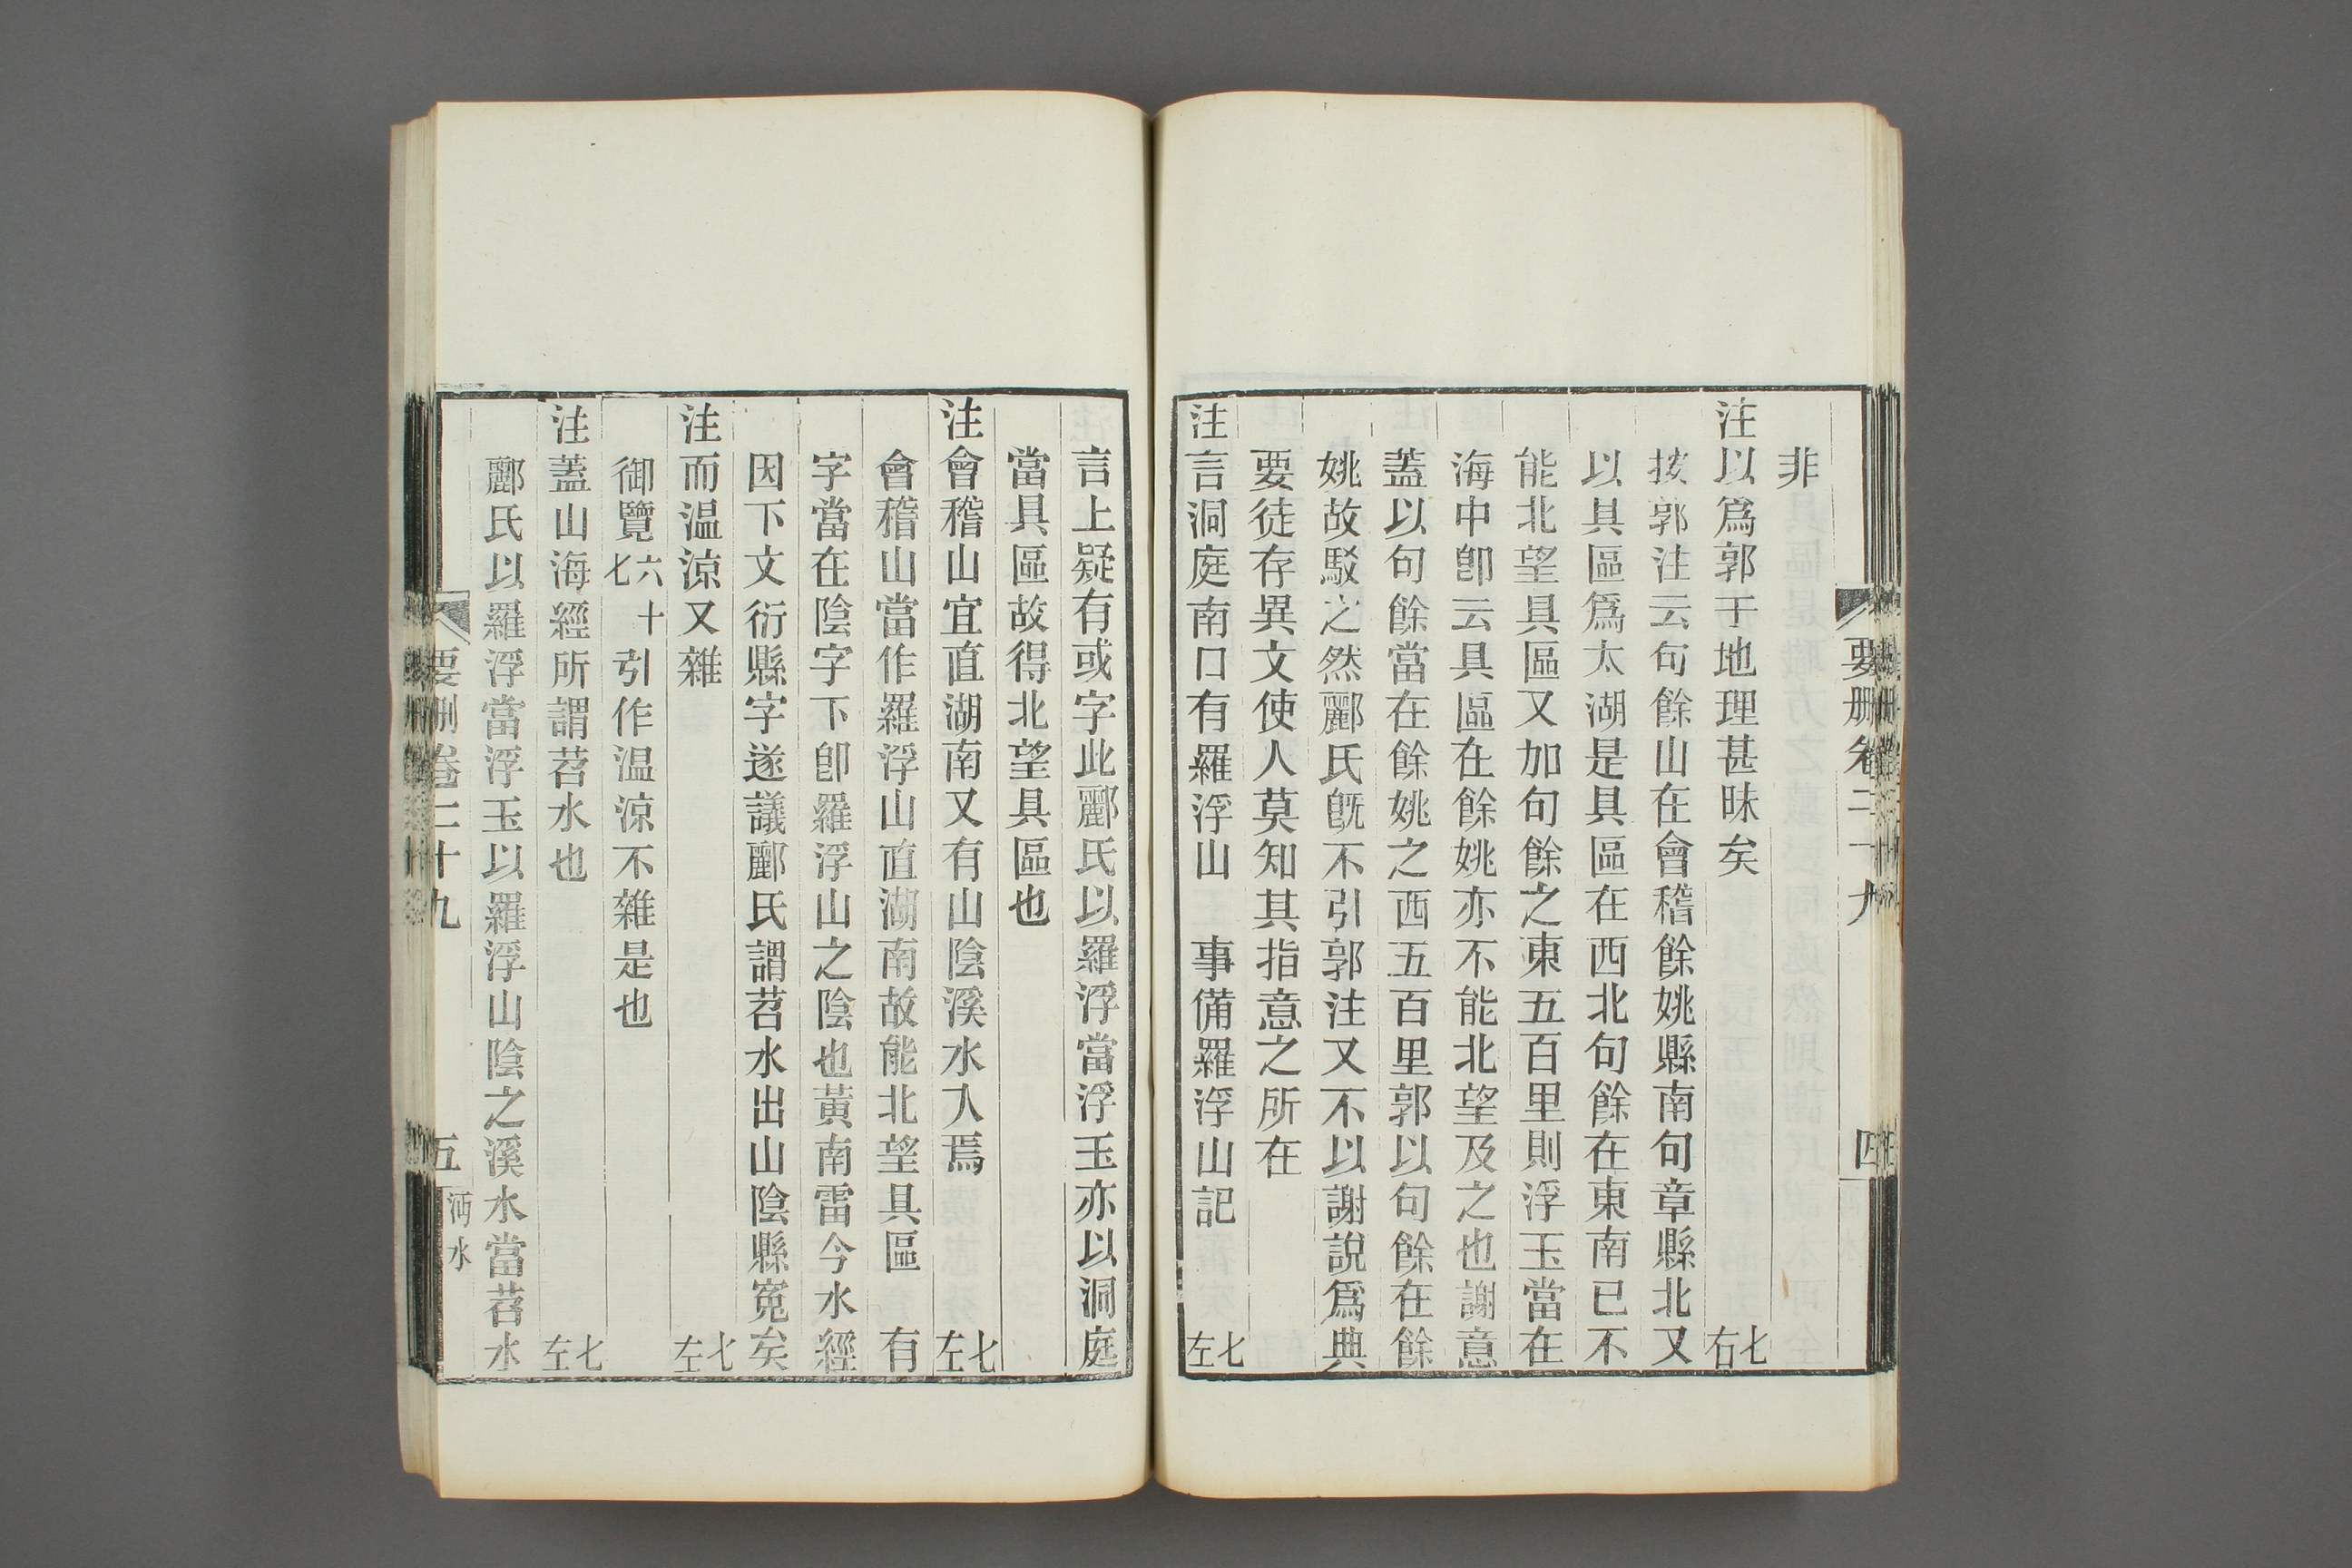 要删卷二十九 四
非
注以爲郭于地理甚昧矣 七右
按郭注云句餘山在會稽餘姚縣南句章縣北又
以具區爲太湖是具區在西北句餘在東南已不
能北望具區又加句餘之東五百里則浮玉當在
海中卽云具區在餘姚亦不能北望及之也謝意
蓋以句餘當在餘姚之西五百里郭以句餘在餘
姚故駁之然酈氏旣不引郭注又不以謝說爲典
要徒存異文使人莫知其指意之所在
注言洞庭南口有羅浮山 事備羅浮山記 七左
言上疑有或字此酈氏以羅浮當浮玉亦以洞庭
當具區故得北望具區也
注會稽山宜直湖南又有山陰溪水入焉 七左
會稽山當作羅浮山直湖南故能北望具區 有
字當在陰字下卽羅浮山之陰也黃南雷今水經
因下文衍縣字遂議酈氏謂苕水出山陰縣寃矣
注而温涼又雜 七左
御覽六十七引作温涼不雜是也
注蓋山海經所謂苕水也 七左
酈氏以羅浮當浮玉以羅浮山陰之溪水當苕水
要删卷二十九 五 沔水